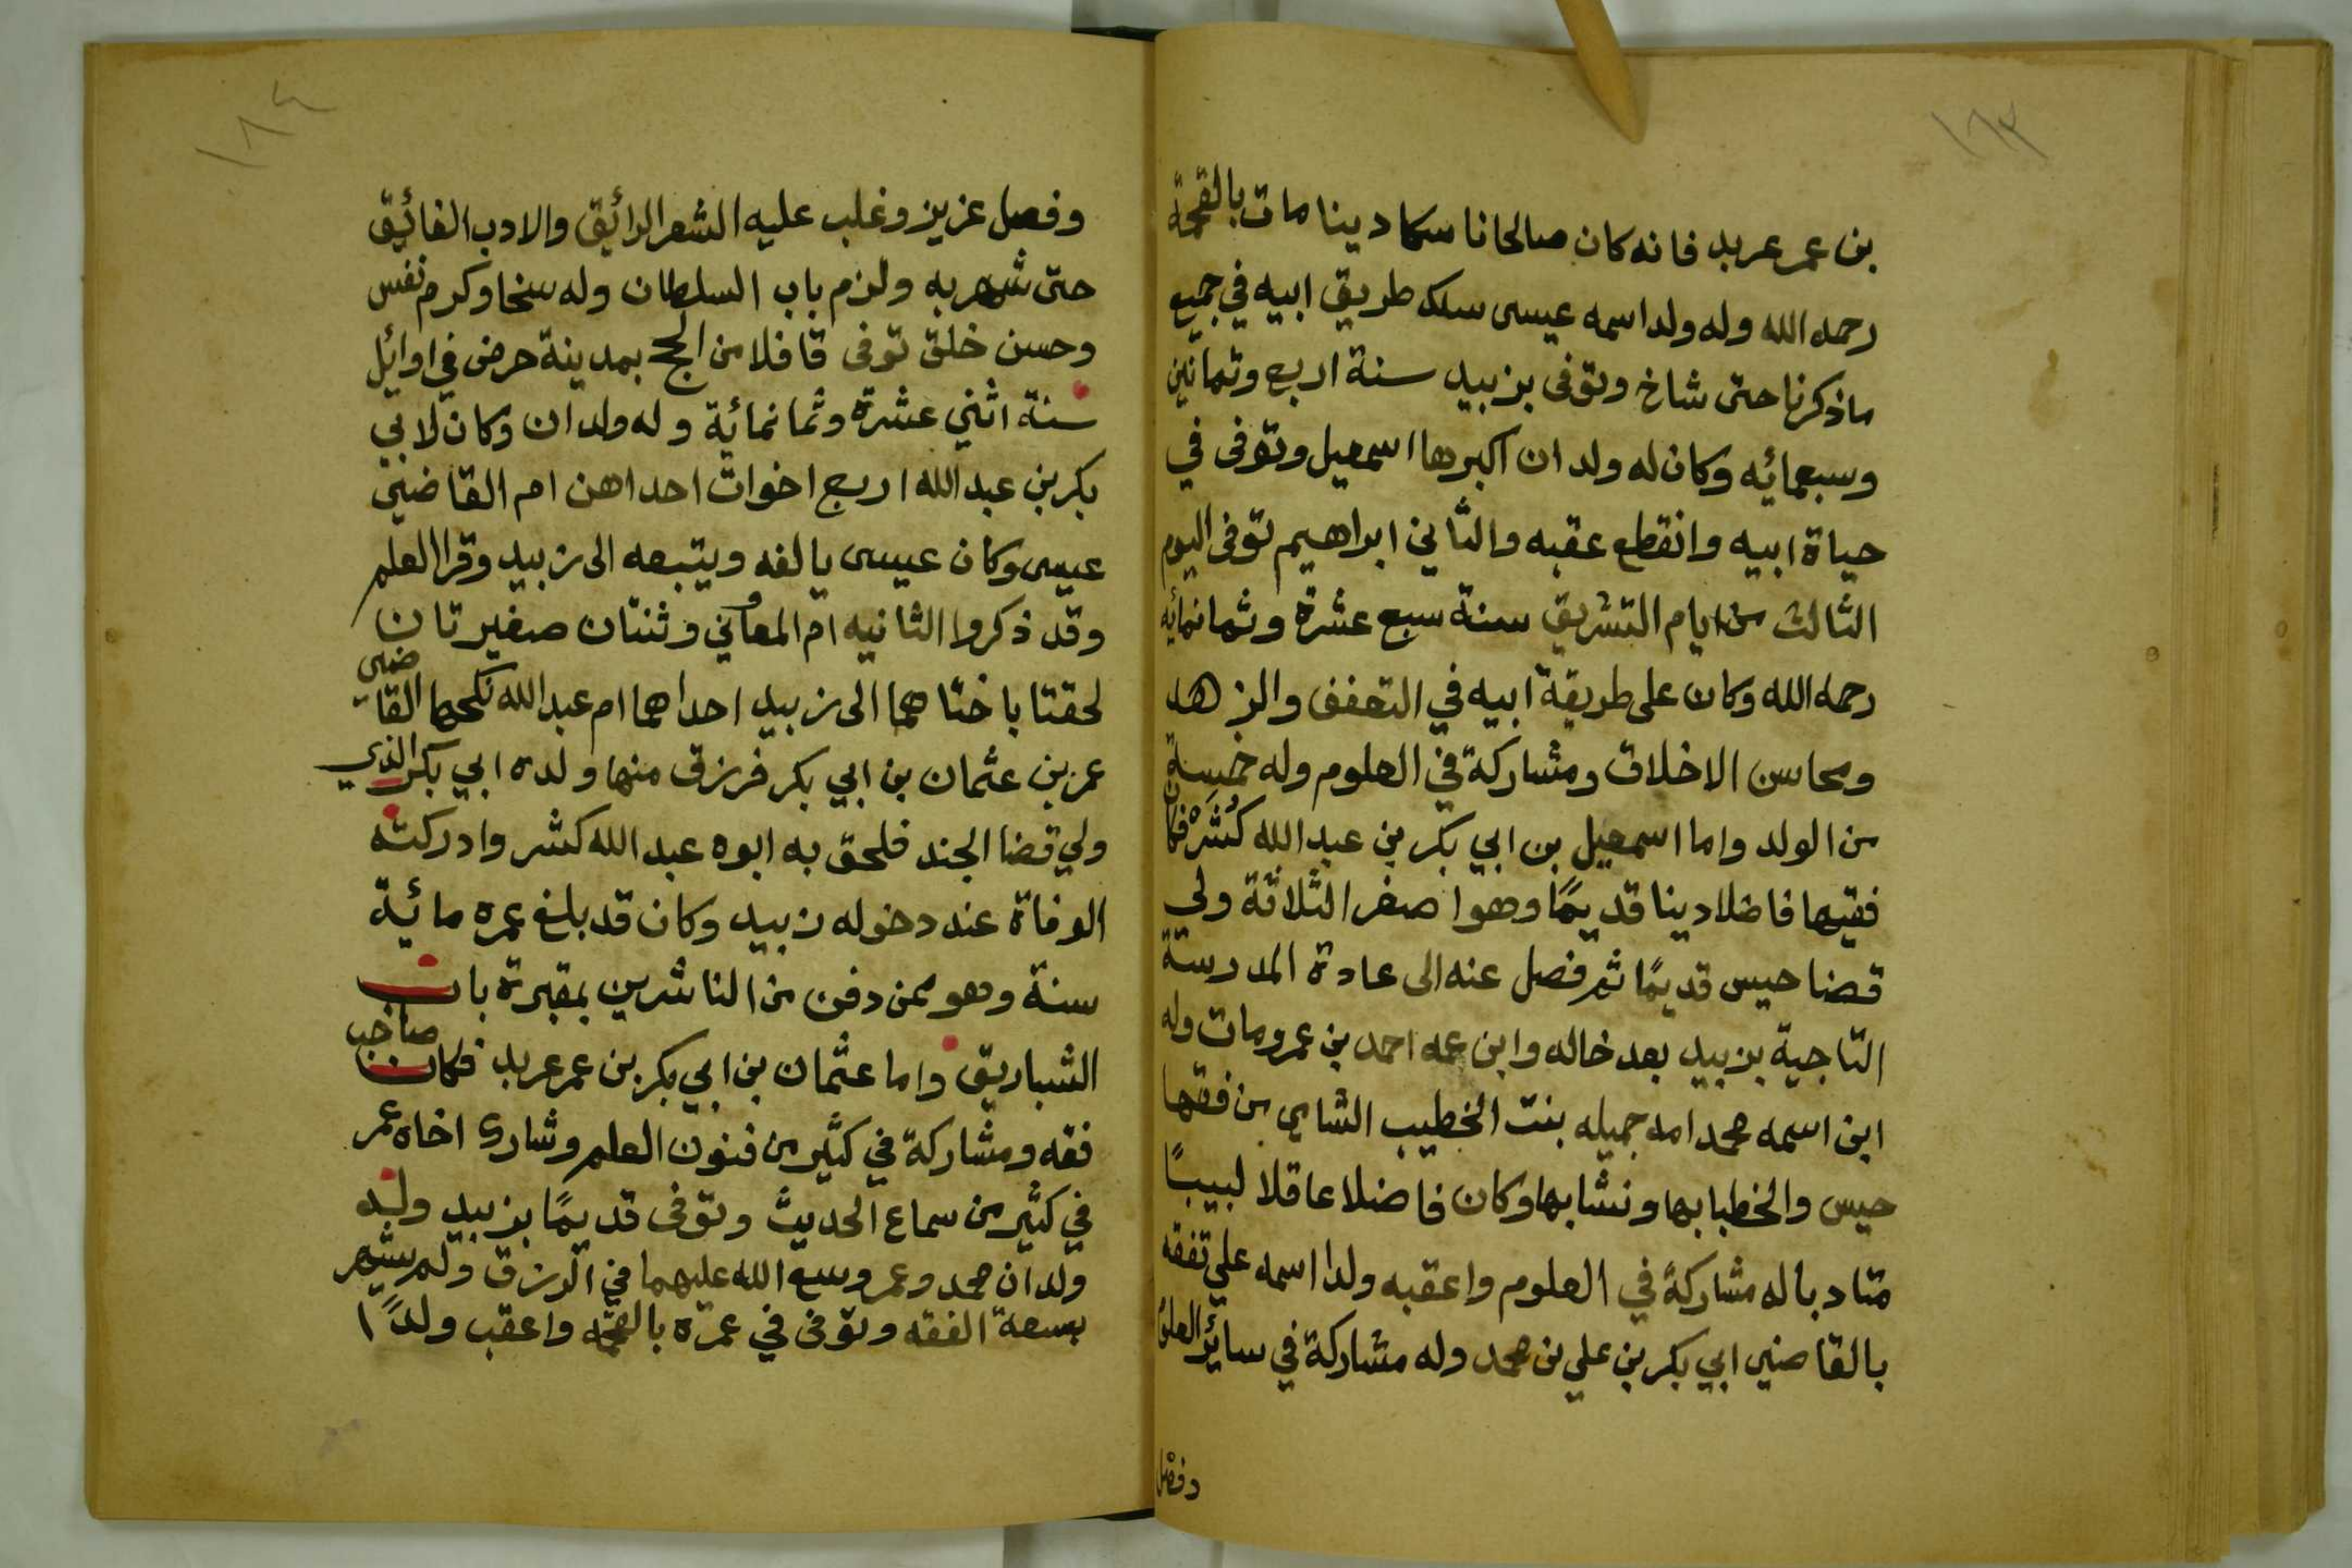 ١٨٣
بن عمر عربد فانه كان صالحا ناسكا دينا مات بالقحمة
رحمه الله وله ولد اسمه عيسى سلك طريق ابيه في جميع
ماذكرنا حتى شاخ وتوفى بزبيد سنة اربع وثمانين
وسبعمائه وكان له ولدان اكبرها اسمعيل وتوفى في
حياة ابيه وانقطع عقبه والثاني ابراهيم توفى اليوم
الثالث من ايام التشريق سنة سبع عشرة وثمانمائه
رحمه الله وكان على طريقة ابيه في التعفف والزهد
ومحاسن الاخلاق ومشاركة في العلوم وله خمسة
من الولد واما اسمعيل بن ابي بكر بن عبد الله كُثَره فكان
فقيها فاضلا دينا قديمًا وهو اصغر الثلاثة ولي
قضا حيس قديمًا ثم فصل عنه الى عادة المدرسة
التاجية بزبيد بعد خاله وابن عمه احمد بن عمر ومات وله
ابن اسمه محمد امه جميله بنت الخطيب الشامي من فقها
حيس والخطبا بها ونشا بها وكان فاضلا عاقلا لبيبًا
متادبا له مشاركة في العلوم واعقبه ولدا اسمه علي تفقه
بالقاضي ابي بكر بن علي بن محمد وله مشاركة في سائر العلوم
وفضل
١٨٤
وفصل عزيز وغلب عليه الشعر الرائيق والادب الفائيق
حتى شهر به ولزم باب السلطان وله سخا وكرم نفس
وحسن خلق توفى قافلا من الحج بمدينة حرض في اوائيل
سنة اثني عشرة وثمانمائة وله ولدان وكان لابي
بكر بن عبد الله اربع اخوات احداهن ام القاضي
عيسى وكان عيسى يالفه ويتبعه الى زبيد وقرا العلم
وقد ذكروا الثانيه ام المعاني وثنتان صغيرتان
لحقتا باختاهما الى زبيد احداهما ام عبد الله نكحها القاضي
عمر بن عثمان بن ابي بكر فرزق منها ولده ابي بكر الذي
ولي قضا الجند فلحق به ابوه عبد الله كثر وادركته
الوفاة عند دخوله زبيد وكان قد بلغ عمره مائية
سنة وهو ممن دفن من الناشرين بمقبرة باب
الشباريق واما عثمان بن ابي بكر بن عمر عربد فكان صاحب
فقه ومشاركة في كثير من فنون العلم وشارك اخاه عمر
في كثير من سماع الحديث وتوفى قديمًا بزبيد وله
ولدان محمد وعمر وسع الله عليهما في الرزق ولم يشهر
بسعة الفقه وتوفى في عمره بالقحمه واعقب ولدًا